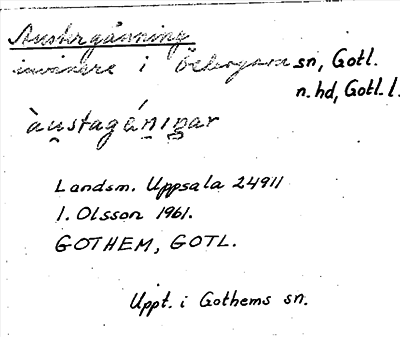 Austergånning
invånare i Östergarn sn, Gotl.
n. hd, Gotl. l.
àu̯stagáni̯n̯ar
Landsm. Uppsala 24911
I. Olsson 1961.
GOTHEM, GOTL.
Uppt. i Gothems sn.